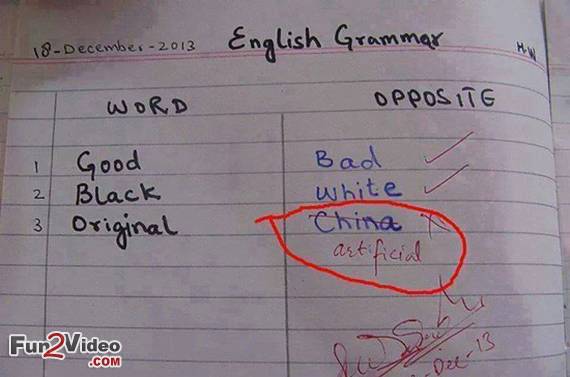 18-December-2013 English Grammar H.W
WORD OPPOSITE
1 Good Bad
2 Black White
3 Original China
artificial
Fun2Video
.COM